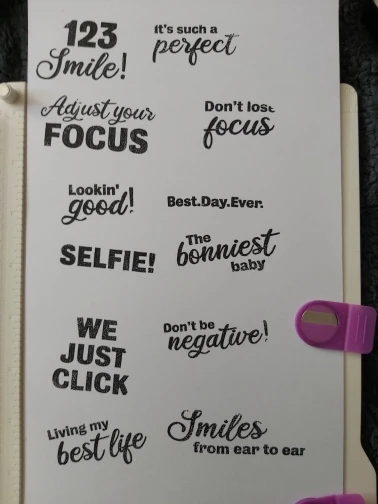 123
Smile!
It's such a
perfect
Adjust your
FOCUS
Don't lose
focus
Lookin'
good!
Best.Day.Ever.
SELFIE!
The
bonniest
baby
WE
JUST
CLICK
Don't be
negative!
Living my
best life
Smiles
from ear to ear